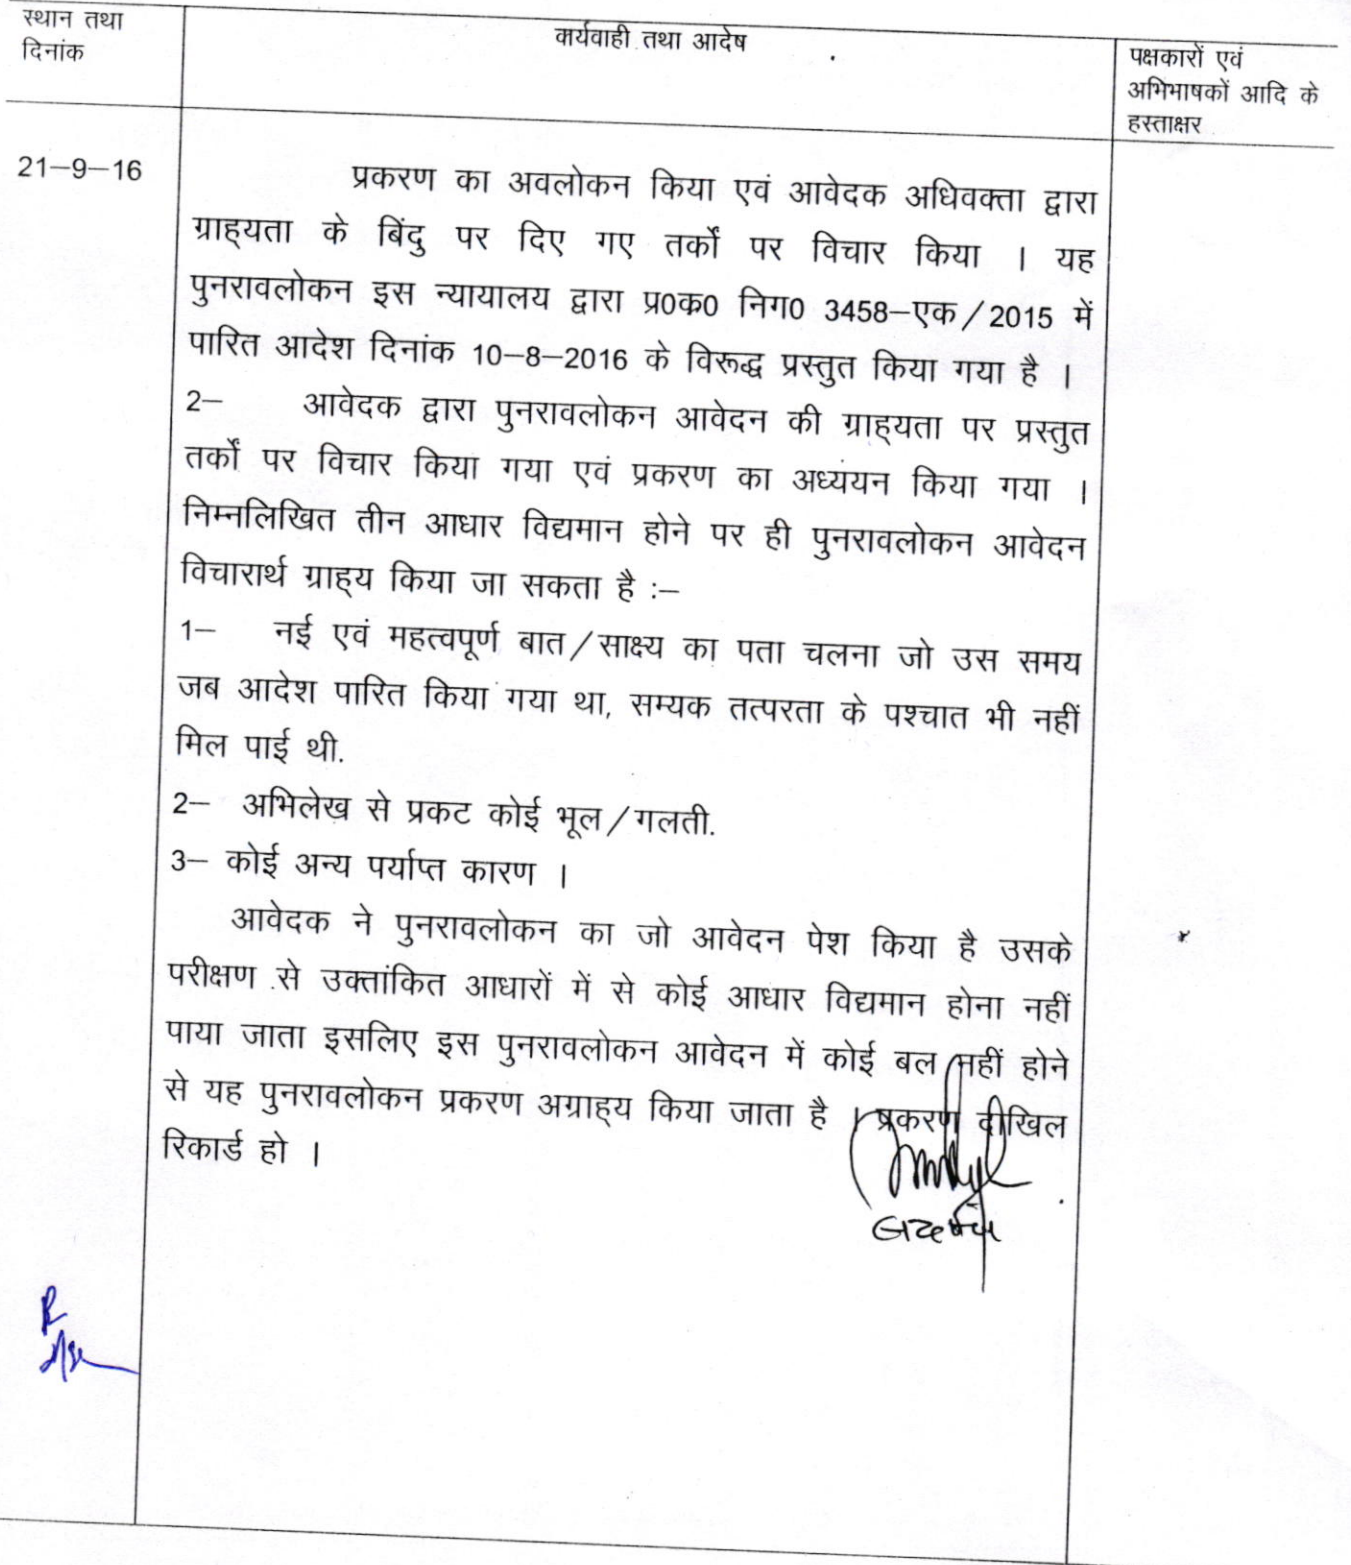 स्थान तथा
दिनांक
कार्यवाही तथा आदेष
पक्षकारों एवं
अभिभाषकों आदि के
हस्ताक्षर
21–9–16
प्रकरण का अवलोकन किया एवं आवेदक अधिवक्ता द्वारा
ग्राह्यता के बिंदु पर दिए गए तर्कों पर विचार किया । यह
पुनरावलोकन इस न्यायालय द्वारा प्र0क0 निग0 3458–एक/2015 में
पारित आदेश दिनांक 10–8–2016 के विरूद्ध प्रस्तुत किया गया है ।
2– आवेदक द्वारा पुनरावलोकन आवेदन की ग्राह्यता पर प्रस्तुत
तर्कों पर विचार किया गया एवं प्रकरण का अध्ययन किया गया ।
निम्नलिखित तीन आधार विद्यमान होने पर ही पुनरावलोकन आवेदन
विचारार्थ ग्राह्य किया जा सकता है :–
1– नई एवं महत्वपूर्ण बात/साक्ष्य का पता चलना जो उस समय
जब आदेश पारित किया गया था, सम्यक तत्परता के पश्चात भी नहीं
मिल पाई थी.
2– अभिलेख से प्रकट कोई भूल/गलती.
3– कोई अन्य पर्याप्त कारण ।
आवेदक ने पुनरावलोकन का जो आवेदन पेश किया है उसके
परीक्षण से उक्तांकित आधारों में से कोई आधार विद्यमान होना नहीं
पाया जाता इसलिए इस पुनरावलोकन आवेदन में कोई बल नहीं होने
से यह पुनरावलोकन प्रकरण अग्राह्य किया जाता है । प्रकरण दाखिल
रिकार्ड हो ।